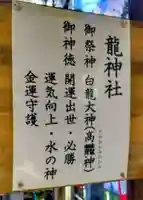 龍神社
御祭神 白龍大神(高龗神)
御神徳 開運出世・必勝
運気向上・水の神
金運守護